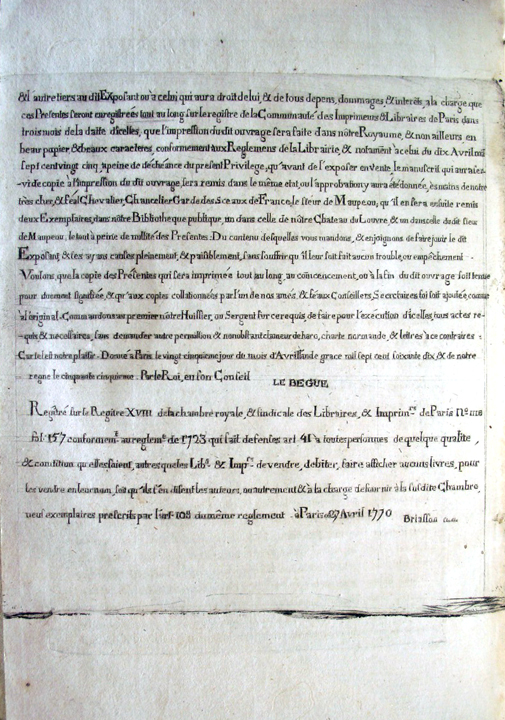 &d'autre tiers au dit Exposant ou à celui qui aura droit de lui, & de tous depens, dommages & interêts, a la charge que
ces Presentes seront enregistrées tout au long sur le registre de la Communauté des Imprimeurs & Libraires de Paris dans
trois mois de la datte d'icelles, que l'impression du dit ouvrage sera faite dans nôtre Royaume, & non ailleurs en
beau papier & beaux caracteres, conformement aux Reglemens de la Librairie, & notament à celui du dix Avril mil
sept cent vingt cinq, a peine de décheance du present Privilege, qu'avant de l'exposer en vente, le manuscrit qui aura ser-
-vi de copie à l'impression du dit ouvrage, sera remis dans le même etat, ou l'approbation y aura été donnée, és mains de notre
très cher, & féal Chevalier, Chancelier Garde des Sceaux de France, le sieur de Maupeou, qu'il en sera ensuite remis
deux Exemplaires, dans nôtre Bibliotheque publique, un dans celle de nôtre Chateau du Louvre, & un dans celle du dit sieur
de Maupeou, le tout à peine de nullité des Presentes. Du contenu desquelles vous mandons, & enjoignons de faire jouir le dit
Exposant, & ses ayans causes pleinement, & paisiblement, sans souffrir qu'il leur soit fait aucun trouble, ou empêchement.
Voulons, que la copie des Présentes qui sera imprimée tout au long, au comencement, ou à la fin du dit ouvrage soit tenue
pour duement signifiée, & qu'aux copies collationnées par l'un de nos amés, & féaux Conseillers, Secretaires foi soit ajoutée, comme
à l'original. Commandons au premier nôtre Huissier, ou Sergent sur ce requis, de faire pour l'execution d'icelles, tous actes re-
-quis & necessaires, sans demander autre permission & nonobstant clameur de haro, charte normande, & lettres à ce contraires:
Car tel est notre plaisir. Donné à Paris le vingt cinquieme jour du mois d'Avril l'an de grace mil sept cent soixante dix, & de notre
regne le cinquante cinquieme. Par le Roi, en son Conseil
LE BEGUE
Régitré sur le Regitre XVIII de la chambre royale, & sindicale des Libraires, & Imprim.rs de Paris N.o
fol. 157 conformem.t au reglem.t de 1723 qui fait defenses art. 41 a toutes personnes de quelque qualité,
& condition qu'elles soient, autres que les Lib.s & Imp.rs de vendre, debiter, faire afficher aucuns livres, pour
les vendre en leur nom, soit qu'ils s'en disent les auteurs, ou autrement & à la charge de fournir à la susdite Chambre
neuf exemplaires prescrits par l'art. 108 du même reglement. à Paris 27 Avril 1770
Briasson